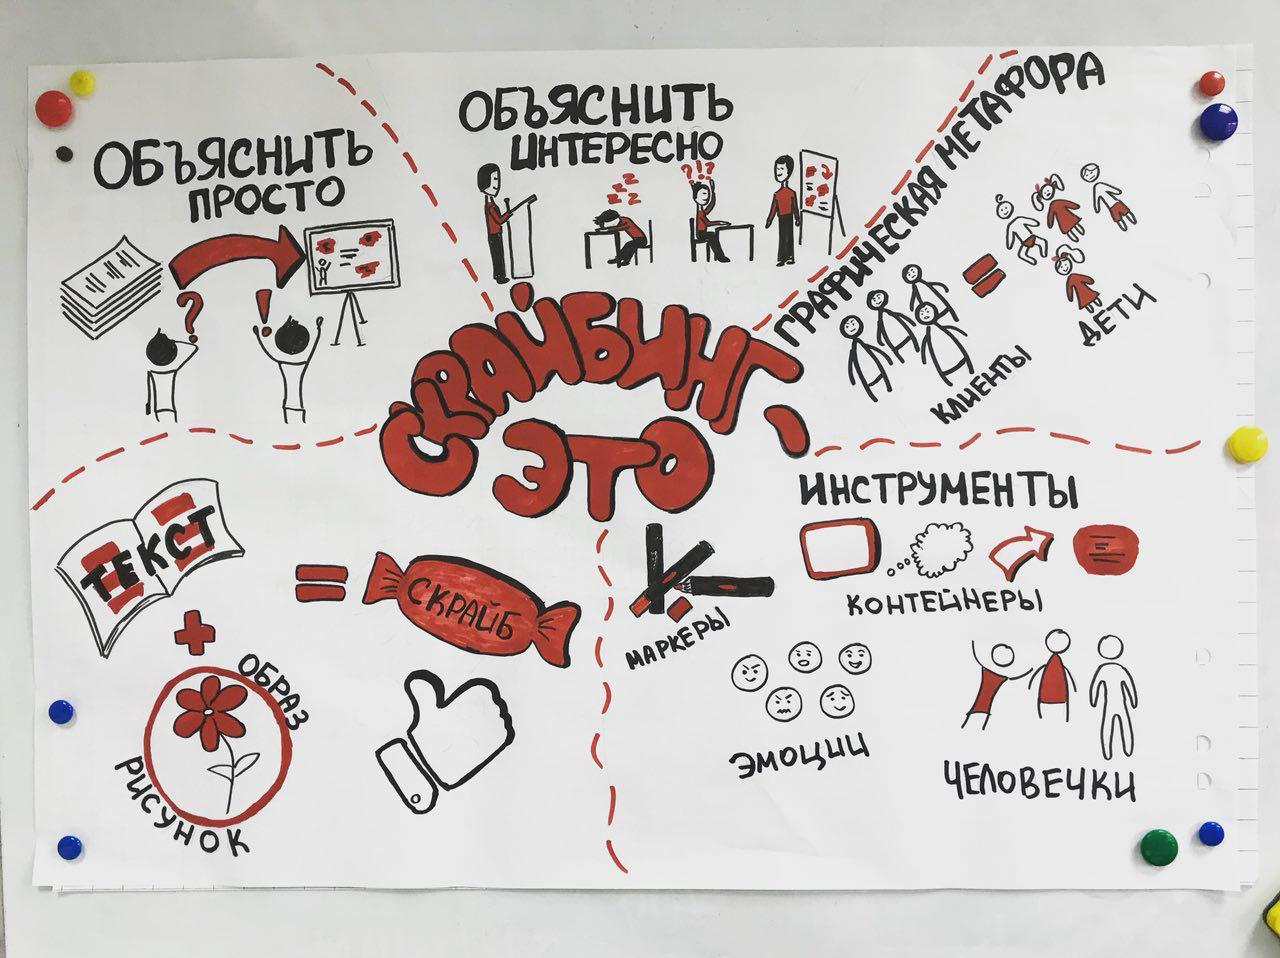 ОБЪЯСНИТЬ
ПРОСТО
?
!
ОБЪЯСНИТЬ
ИНТЕРЕСНО
Z Z Z Z Z
?!?
ГРАФИЧЕСКАЯ МЕТАФОРА
=
КЛИЕНТЫ
ДЕТИ
СКРАЙБИНГ,
ЭТО
ТЕКСТ
+
ОБРАЗ
РИСУНОК
=
СКРАЙБ
ИНСТРУМЕНТЫ
МАРКЕРЫ
КОНТЕЙНЕРЫ
ЭМОЦИИ
ЧЕЛОВЕЧКИ